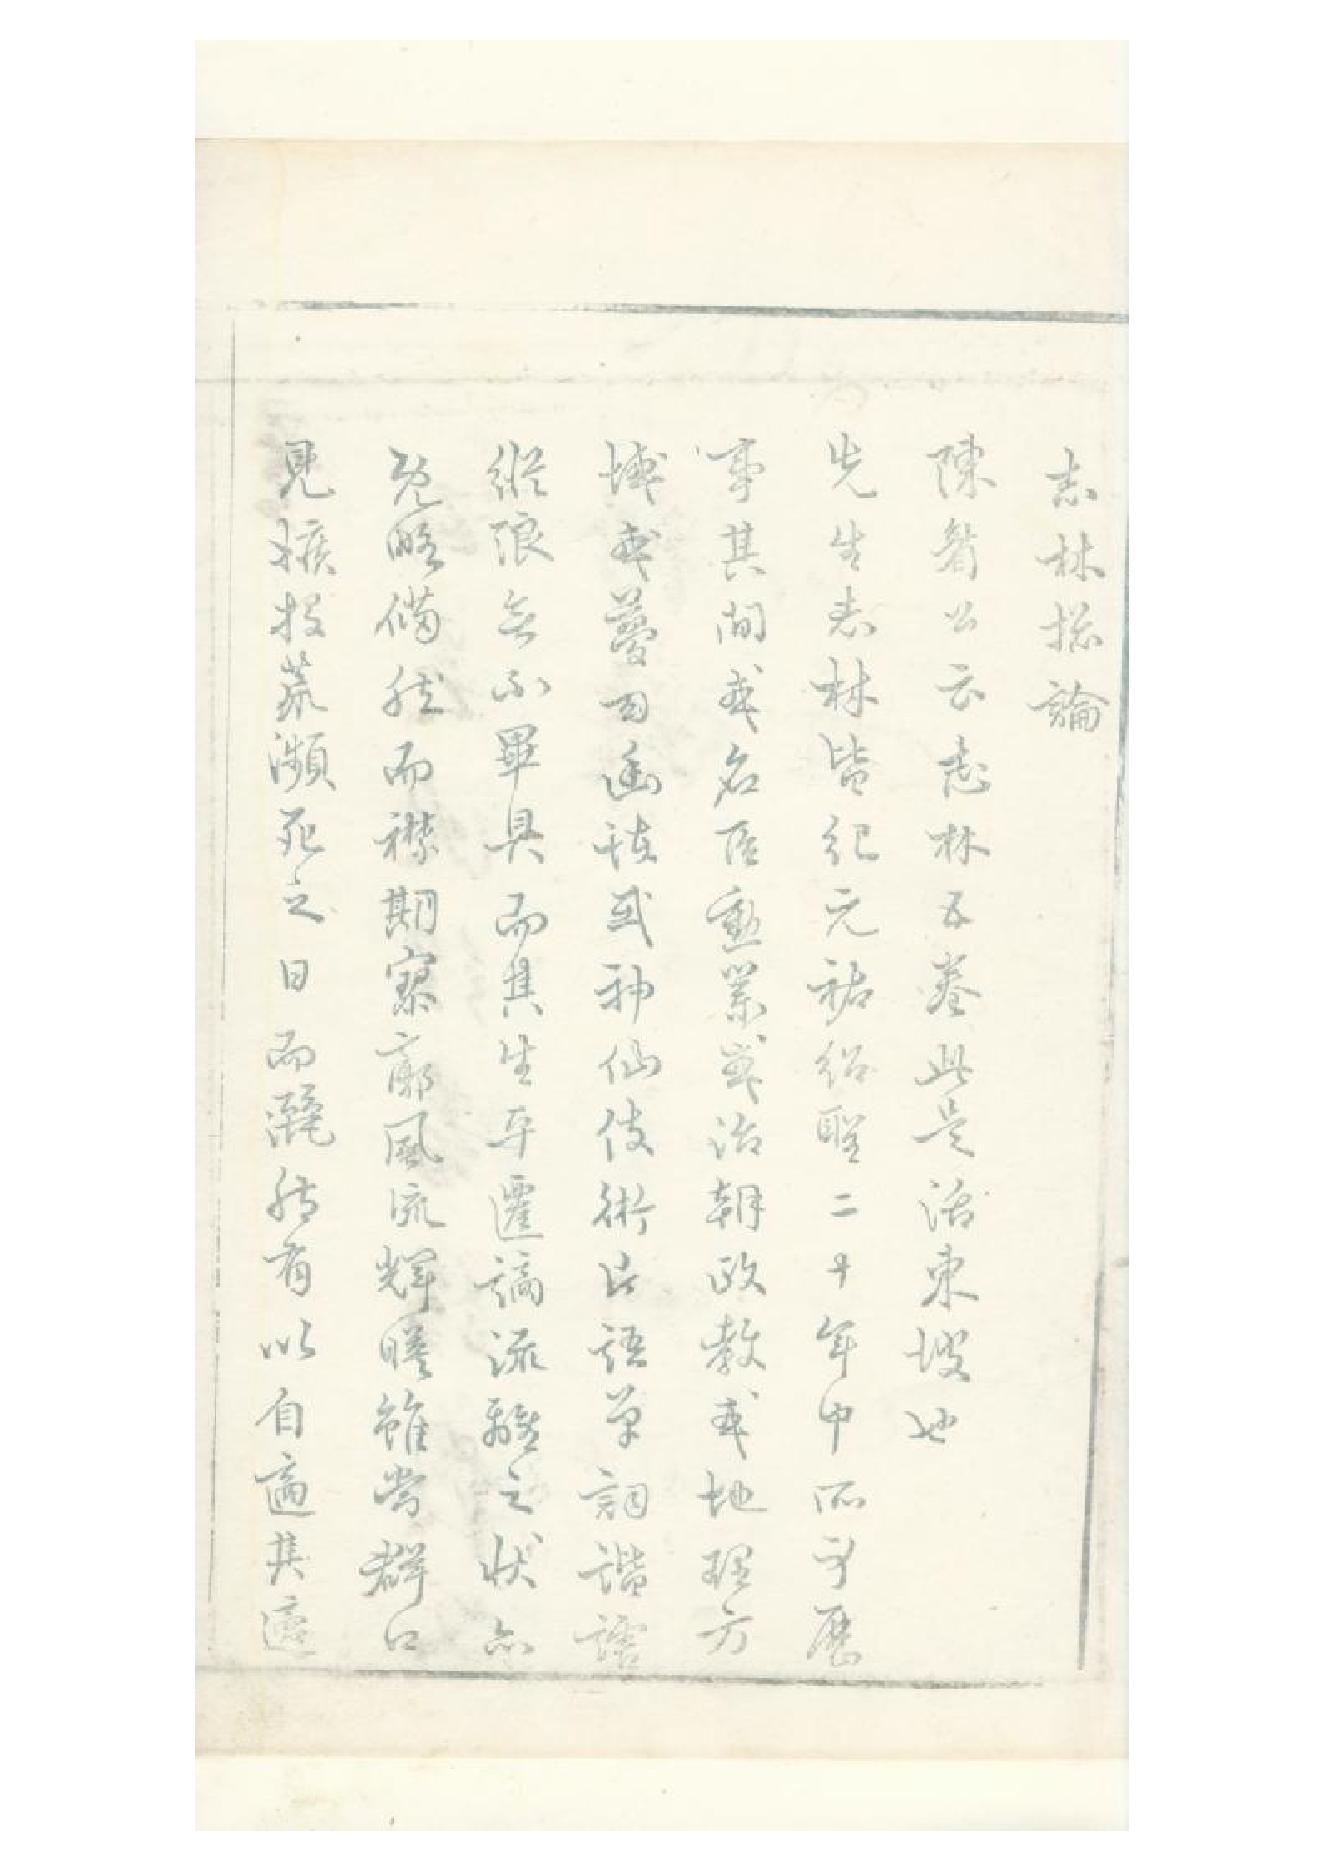 志林揔論
陳眉公云志林五卷此是活東坡也
先生志林皆紀元祐紹聖二十年中所身歷
事其間或名臣勳業或治朝政教或地理方
域或夢幻幽怪或神仙伎術片語單詞諧謔
縱浪無不畢具而其生平遷謫流離之狀亦
既略備然而襟期寥廓風流輝映雖當群口
見嫉投荒瀕死之日而灑然有以自適其適